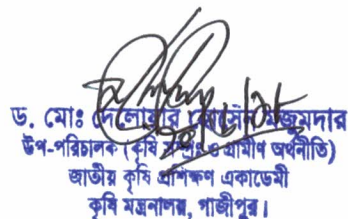 ড. মোঃ দেলোয়ার হোসেন মজুমদার
উপ-পরিচালক (কৃষি সম্প্রঃ ও গ্রামীণ অর্থনীতি)
জাতীয় কৃষি প্রশিক্ষণ একাডেমী
কৃষি মন্ত্রনালয়, গাজীপুর।